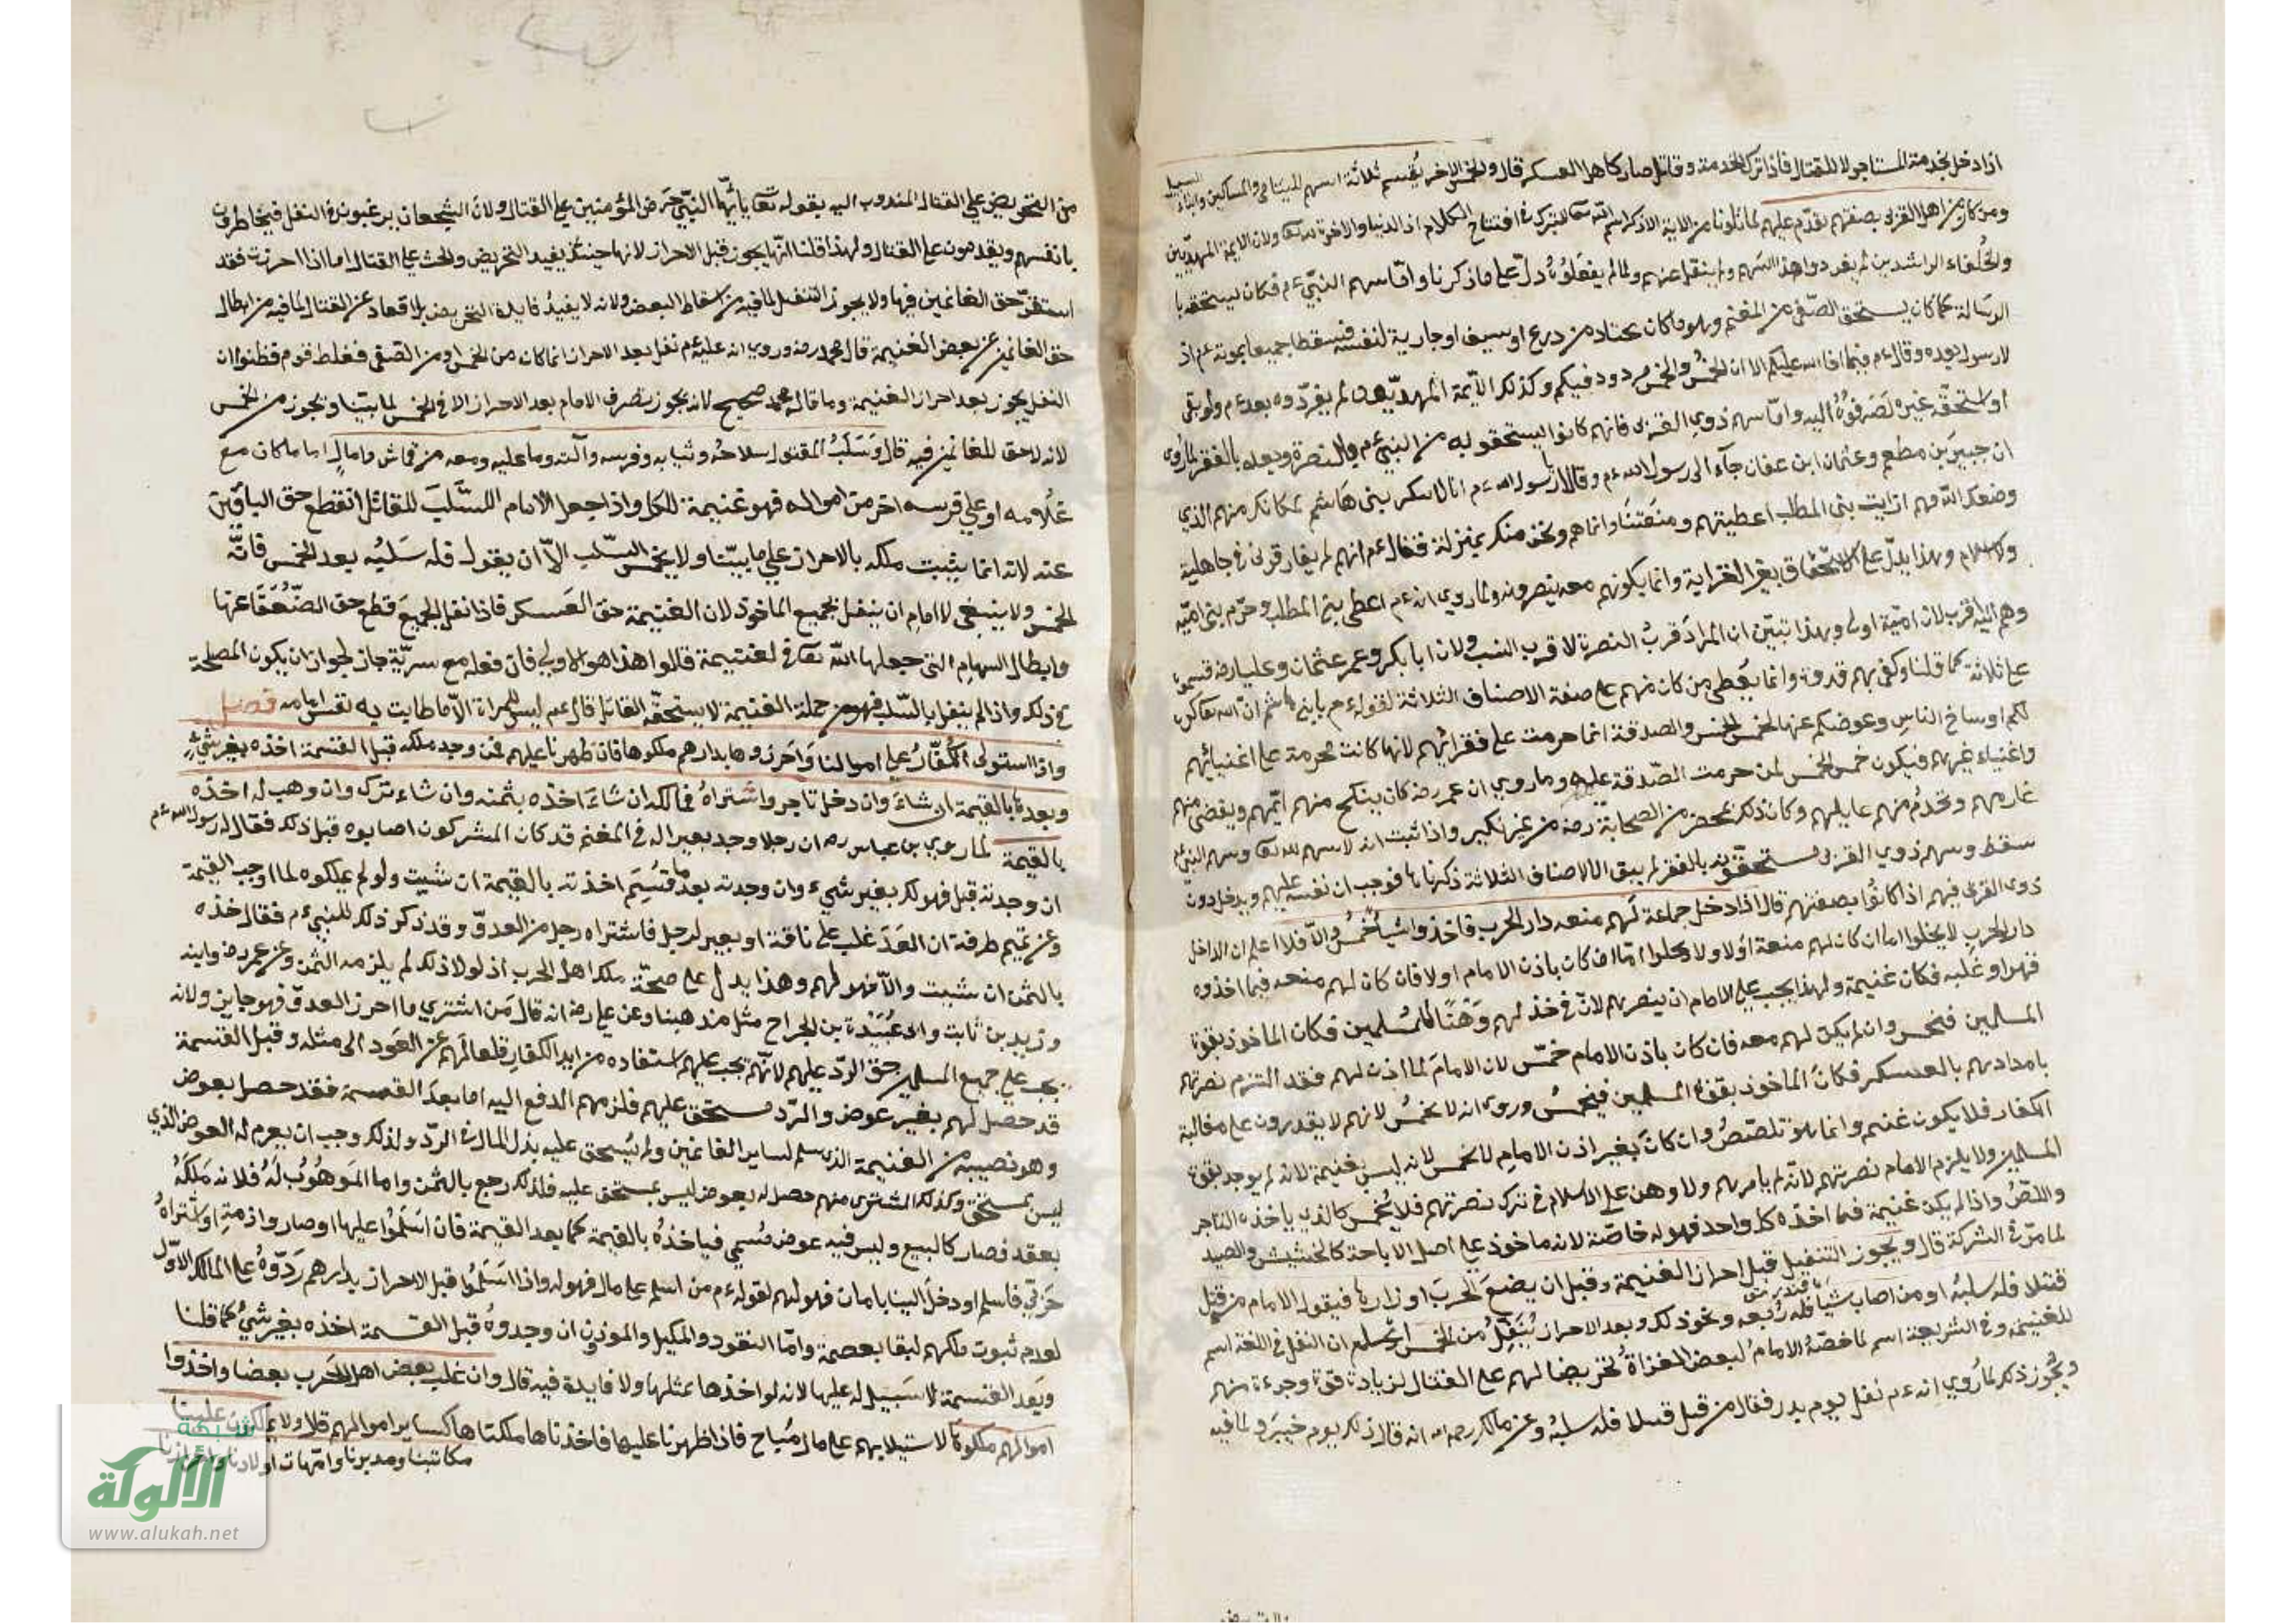 اذا دخل لخدمة المستاجر لا للقتال فاذا ترك الخدمة وقاتل صار كاهل العسكر قال والخمس الاخر يقسم ثلاثة اسهم لليتامى والمساكين وابناء السبيل
ومن كان من اهل القربى بصفتهم يقدم عليهم لما تلونا من الاية الا ذكر اسم الله تعالى للتبرك في افتتاح الكلام اذ الدنيا والاخرة لله تعالى ولان الايمة المهديين
والخلفاء الراشدين لم يفردوا هذا السهم ولم ينقل عنهم ولما لم يفعلوه دل على ما ذكرنا واما سهم النبي ءم فكان يستحقه با
الرسالة كما كان يستحق الصفي من المغنم وهو ما كان يختاره من درع او سيف او جارية لنفسه فسقطا جميعا بموته ءم اذ
لا رسول بعده وقال ءم فيما افا الله عليكم الا ان الخمس والخمس مردود فيكم وكذلك الأيمة المهديون لم يفردوه بعده ءم ولو بقي
او استحقه غيره لصرفوه اليه واما سهم ذوي القربى فانهم كانوا يستحقونه من النبي ءم بالنصرة وبعده بالفقر لما روى
ان جبير بن مطعم وعثمان ابن عفان جآء الى رسول الله ءم وقالا يا رسول الله ءم انا لا ننكر بني هاشم لمكانك منهم الذي
وضعك الله فيهم ارايت بني المطلب اعطيتهم ومنعتنا وانما هم ونحن منك بمنزلة فقال ءم انهم لم يفارقوني في جاهلية
ولا اسلام وهذا يدل على الاستحقاق بغير القرابة وانما يكونهم معه ينصرونه ولما روي انه ءم اعطى بني المطلب وحرم بني امية
وهم اليه اقرب لان امية اولى وبهذا تبين ان المراد قرب النصرة لا قرب النسب ولان ابا بكر وعمر عثمان وعليا رضه قسموه
على ثلاثة كما قلنا وكفى بهم قدوة وانما يعطى من كان منهم على صفة الاصناف الثلاثة لقوله ءم يا بني هاشم ان الله تعالى كره
لكم اوساخ الناس وعوضكم عنها الخمس الخمس والصدقة انما حرمت على فقرائهم لانها كانت محرمة على اغنيائهم
واغنياء غيرهم فيكون خمس الخمس لمن حرمت الصدقة عليه وما روي ان عمر رضه كان ينكح منهم ايمهم ويقضي منهم
غارمهم ويخدم منهم عايلهم وكان ذلك بمحضر من الصحابة رضه من غير نكير واذا ثبت انه لا سهم لله تعالى وسهم النبي ءم
سقط وسهم ذوي القربى يستحقونه بالفقر لم يبق الا الاصناف الثلاثة ذكرناها فوجب ان نقسمه عليهم ويدخل دون
ذوي القربى فيهم اذا كانوا بصفتهم قال اذا دخل جماعة لهم منعه دار الحرب فاخذوا شيأ خمس والا فلا اعلم ان الداخل
دار الحرب لا يخلوا اما ان كان لهم منعة اولا ولا يخلوا اما ان كان باذن الامام او لا فان كان لهم منعه فيما اخذوه
قهرا وغلبه فكان غنيمة ولهذا يجب على الامام ان ينصرهم لان في خذلهم وهنا للمسلمين فكان الماخوذ بقوة
المسلمين فيخمس وان لم يكن لهم معه فان كان باذن الامام خمس لان الامام لما اذن لهم فقد التزم نصرتهم
بامدادهم بالعسكر فكان الماخوذ بقوة المسلمين فيخمس وروى انه لا يخمس لانهم لا يقدرون على مغالبة
الكفار فلا يكون غنيم وانما هو تلصص وان كان بغير اذن الامام لا يخمس لانه ليس بغنيمة لانه لم يوجد بقوة
المسلمين ولا يلزم الامام نصرتهم لانه لم يامرهم ولا وهن على الاسلام في ترك نصرتهم فلا يخمس كالذي ياخذه التاجر
واللص واذا لم يكن غنيمة فما اخذه كل واحد فهو له خاصة لانه ماخوذ على اصل الاباحة كالحشيش والصيد
لما مر في الشركة قال ويجوز التنفيل قبل احراز الغنيمة وقبل ان يضع الحرب اوزارها فيقول الامام من قتل
قتلا فله سلبه او من اصاب شيأ فله ربعه ونحو ذلك وبعد الاحراز ينفل من الخمس اعلم ان النفل في اللغة اسم
للغنيمة وفي الشريعة اسم لما خصه الامام لبعض الغزاة تحريضا لهم على القتال لزيادة قوة وجرءة منهم
ويجوز ذلك لما روي انه ءم نفل يوم بدر فقال من قتل قتيلا فله سلبه وعن مالك رحمه الله انه قال ذلك يوم خيبر ولما فيه
من التحريض على القتال المندوب اليه بقوله تعالى يا ايها النبي حرض المؤمنين على القتال ولان الشجعان يرغبون في النفل فيخاطرون
بانفسهم ويقدمون على القتال ولهذا قلنا انها يجوز قبل الاحراز لانها حينئذ يفيد التحريض والحث على القتال اما اذا احرزت فقد
استقر حق الغانمين فيها ولا يجوز التنفيل لما فيه من اسقاط البعض ولانه لا يفيد فايدة التحريض بل اقعاد عن القتال لما فيه من ابطال
حق الغانمين عن بعض الغنيمة قال محمد رضه وروي انه عليه ءم نفل بعد الاحراز انما كان من الخمس او من الصفي فغلط قوم فظنوا ان
النفل يجوز بعد احراز الغنيمة وما قاله محمد صحيح لانه يجوز تصرف الامام بعد الاحراز الا في الخمس لما بينا ويجوز من الخمس
لانه لا حق للغانمين فيه قال وسلب المقتول سلاحه وثيابه وفرسه وآلته وما عليه ومعه من قماش ومال اما ما كان مع
غلامه او على فرسه اخر من امواله فهو غنيمة للكل واذا جعل الامام السلب للقاتل انقطع حق الباقين
عنه لانه انما يثبت ملكه بالاحراز على ما بينا ولا يخمس السلب الا ان يقول فله سلبه بعد الخمس فانه
لخمس ولا ينبغي لامام ان ينفل بجميع الماخوذ لان الغنيمة حق العسكر فاذا نفل الجميع قطع حق الضعفا عنها
وابطال السهام التي جعلها الله تعالى في لغنتيمة قالوا هذا هو الاولى فان فعله مع سرية جاز لجواز ان يكون المصلحة
في ذلك واذا لم ينفل بالسلب فهو من جملة الغنيمة لا يستحقه القاتل قال ءم ليس للمراة الا ما طابت به نفس امامه فصل
واذا استولى الكفار على اموالنا واحرزوها بدارهم ملكوها فان ظهرنا عليهم فمن وجد ملكه قبل القسمة اخذه بغير شيء
وبعدها بالقيمة ان شاء وان دخل تاجر واشتراه فمالكه ان شاء اخذه بثمنه وان شاء ترك وان وهب له اخذه
بالقيمة لما روي بن عباس رضه ان رجلا وجد بعيرا له في المغنم قد كان المشركون اصابوه قبل ذلك فقال له رسول الله ءم
ان وجدته قبل فهو لك بغير شيء وان وجدته بعد ما قسم اخذته بالقيمة ان شئت ولو لم يملكوه لما اوجب القيمة
وعن تميم طرفة ان العد غلب على ناقة او بعير لرجل فاشتراه رجل من العدو وقد ذكر ذلك للنبي ءم فقال خذه
بالثمن ان شئت والا فهو لهم وهذا يدل على صحة ملك اهل الحرب اذ لولا ذلك لم يلزمه الثمن وعن عمر رضه وابنه
وزيد بن ثابت وابى عبيدة بن الجراح مثل مذهبنا وعن علي رضه انه قال من اشترى ما احرز العدو فهو جايز ولانه
يجب على جميع المسلمين حق الرد عليهم لانه يجب عليهم استنقاذه من ايد الكفار قلعا لهم عن العود الى مثله وقبل القسمة
قد حصل لهم بغير عوض والرد مستحق عليهم فلزمهم الدفع اليه اما بعد القسمة فقد حصل بعوض
وهو نصيبه من الغنيمة الذي سلم لساير الغانمين ولم يستحق عليه بذل المال في الرد ولذلك وجب ان يغرم له العوض الذي
ليس بمستحق وكذلك المشترى منهم حصل له بعوض ليس بمستحق عليه فلذلك رجع بالثمن واما الموهوب له فلانه ملكه
بعقد فصار كالبيع وليس فيه عوض مسمى فياخذه بالقيمة كما بعد القيمة فان اسلموا عليها او صاروا ذمة او اشتراه
حربي فاسلم او دخل الينا بامان فهو لهم لقوله ءم من اسلم على مال فهو له واذا اسلموا قبل الاحراز بدارهم ردوه على المالك الاول
لعدم ثبوت ملكهم لبقا بعصمة واما النقود والمكيل والموزون ان وجدوه قبل القسمة اخذه بغير شيء كما قلنا
وبعد القسمة لا سبيل له عليها لانه لو اخذها بمثلها ولا فايدة فيه قال وان غلب بعض اهل الحرب بعضا واخذوا
اموالهم ملكوها لاستيلايهم على مال مباح فاذا ظهرنا عليها فاخذناها ملكناها كساير اموالهم قلا ولا يملكون علينا
مكاتبنا ومدبرنا وامهات اولادنا واحرارنا
شبكة
الألوكة
www.alukah.net